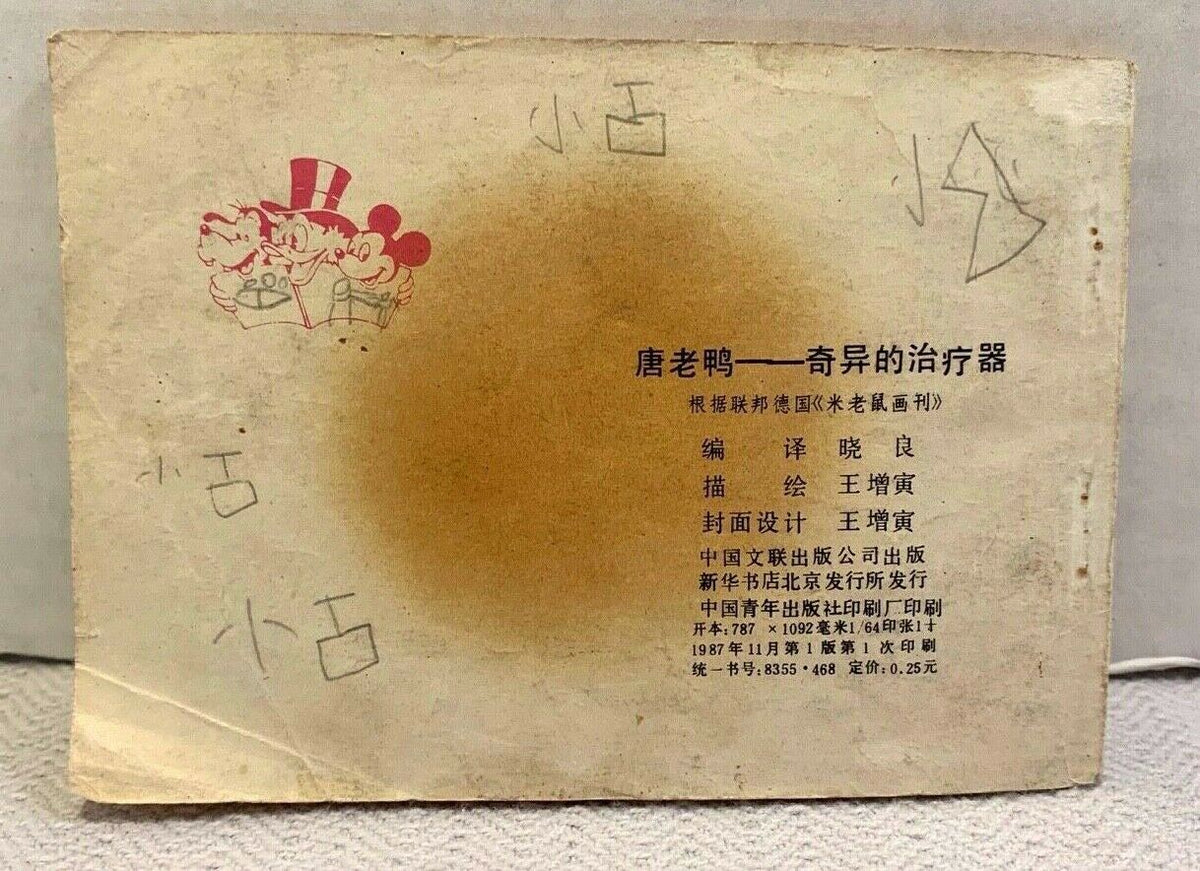 小古
小
唐老鸭——奇异的治疗器
根据联邦德国《米老鼠画刊》
编 译 晓 良
描 绘 王增寅
封面设计 王增寅
中国文联出版公司出版
新华书店北京发行所发行
中国青年出版社印刷厂印刷
开本:787 ×1092毫米1/64印张1
1987年11月第1版第1次印刷
统一书号:8355·468 定价:0.25元
小古
小古